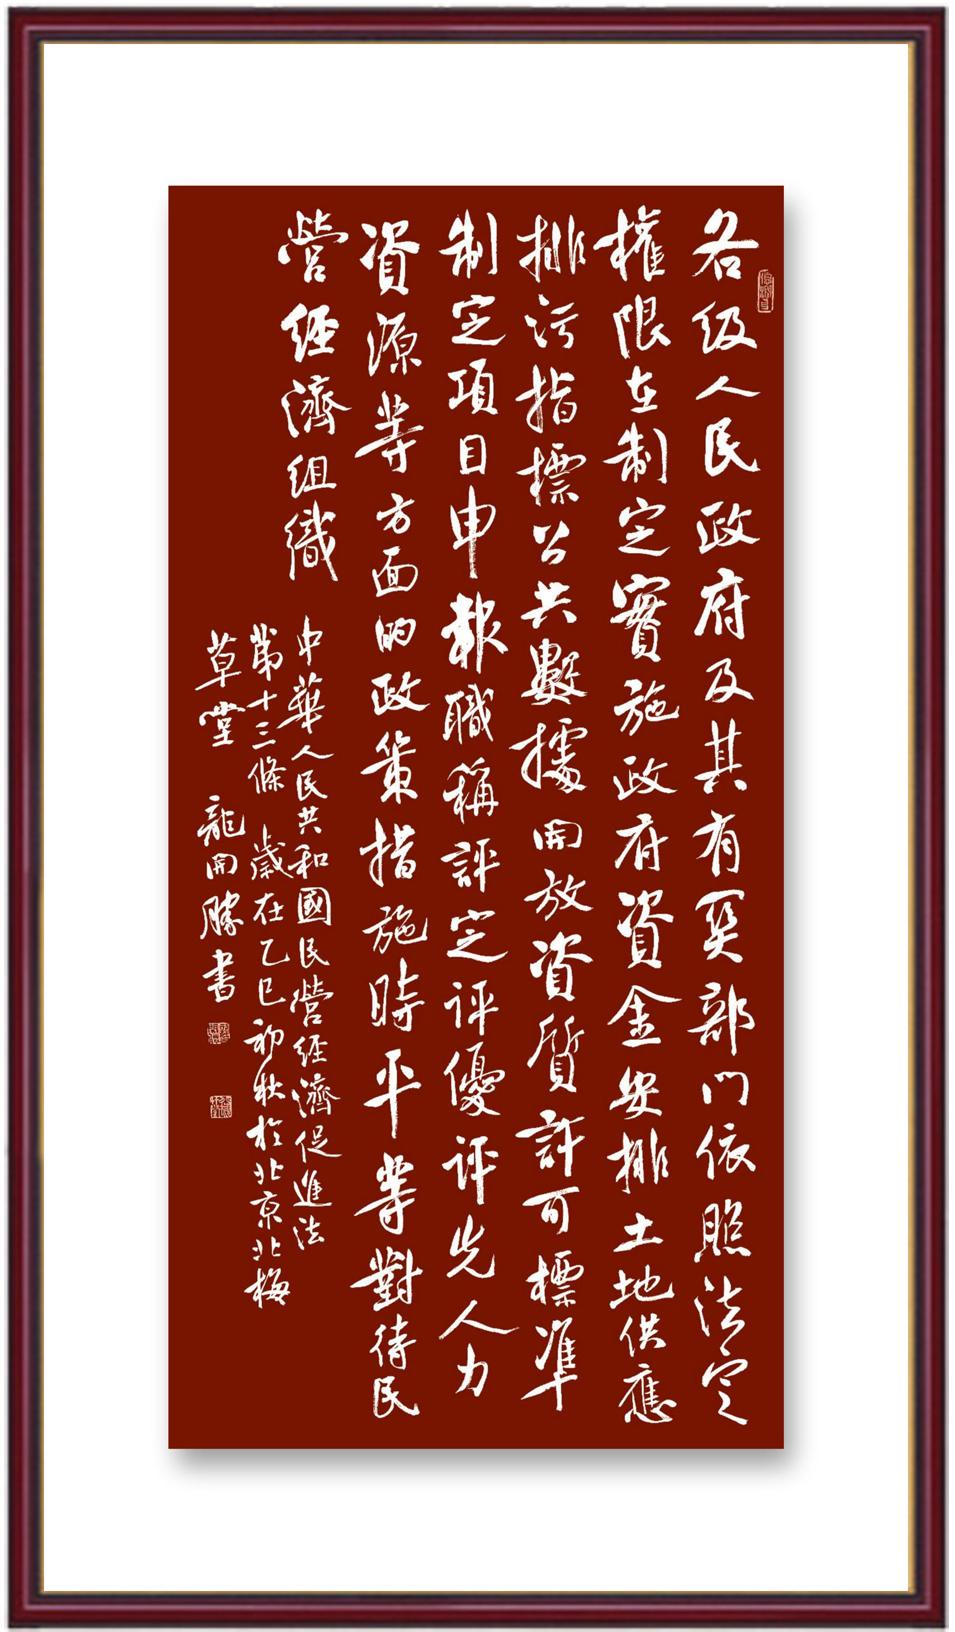 各级人民政府及其有関部门依照法定
權限在制定實施政府資金安排土地供應
排污指標公共數據開放資質許可標準
制定項目申報職稱評定评優评先人力
資源等方面的政策措施時平等對待民
營经濟组織
中華人民共和國民營经濟促進法
第十三條 歲在乙巳初秋於北京北梅
草堂 龍開勝書